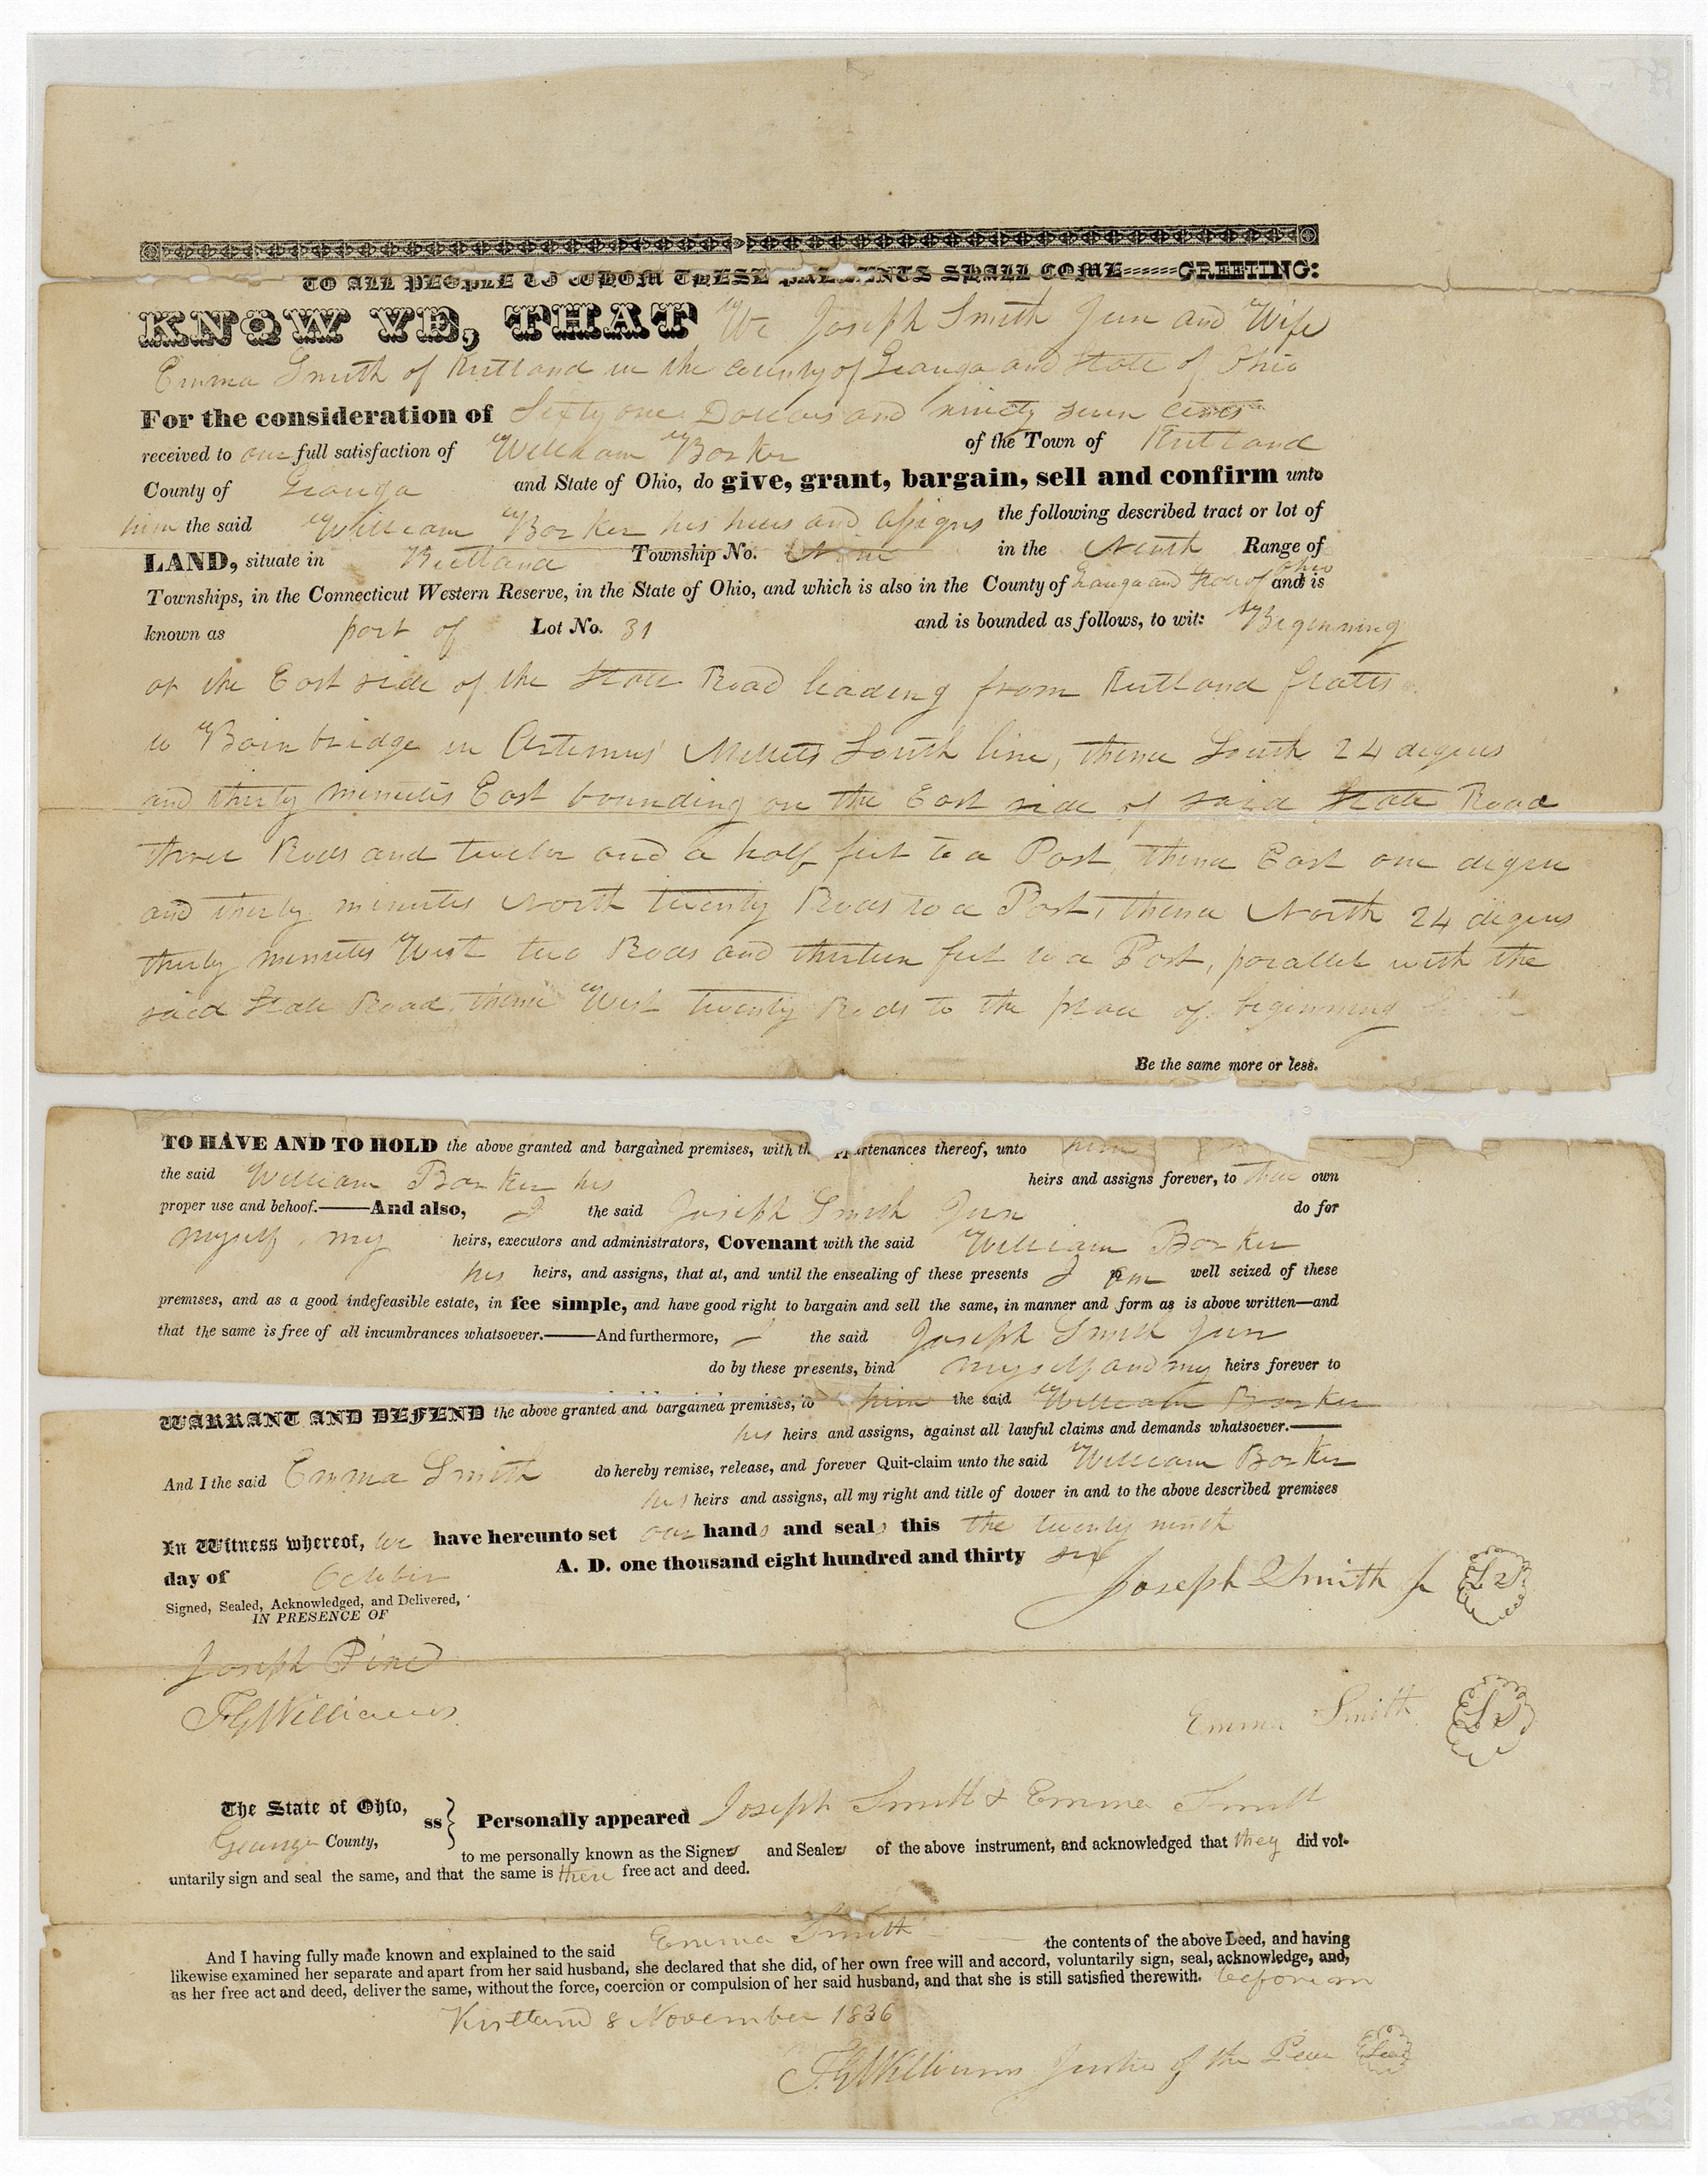 TO ALL PEOPLE TO WHOM THESE PRESENTS SHALL COME======GREETING:
KNOW YE, THAT We Joseph Smith Jun and Wife
Emma Smith of Kirtland in the county of Geauga and State of Ohio
For the consideration of Sixty one Dollars and ninety seven cents
received to our full satisfaction of William Barker of the Town of Kirtland
County of Geauga and State of Ohio, do give, grant, bargain, sell and confirm unto
him the said William Barker his heirs and assigns the following described tract or lot of
LAND, situate in Kirtland Township No. Nine in the Ninth Range of
Townships, in the Connecticut Western Reserve, in the State of Ohio, and which is also in the County of Geauga and State of Ohio and is
known as part of Lot No. 31 and is bounded as follows, to wit: Beginning
at the East side of the State Road leading from Kirtland flatts
to Bainbridge in Artemus Millets South line, thence South 24 degrees
and thirty minutes East bounding on the East side of said State Road
three Rods and twelve and a half feet to a Post, thence East one degree
and thirty minutes North twenty Rods to a Post, thence North 24 degrees
thirty minutes West two Rods and thirteen feet to a Post, parallel with the
said State Road, thence West twenty Rods to the place of beginning
Be the same more or less.
TO HAVE AND TO HOLD the above granted and bargained premises, with the appurtenances thereof, unto him
the said William Barker his heirs and assigns forever, to their own
proper use and behoof.——And also, I the said Joseph Smith Jun do for
myself, my heirs, executors and administrators, Covenant with the said William Barker
his heirs, and assigns, that at, and until the ensealing of these presents I am well seized of these
premises, and as a good indefeasible estate, in fee simple, and have good right to bargain and sell the same, in manner and form as is above written—and
that the same is free of all incumbrances whatsoever.——And furthermore, I the said Joseph Smith Jun
do by these presents, bind myself and my heirs forever to
WARRANT AND DEFEND the above granted and bargained premises, to him the said William Barker
his heirs and assigns, against all lawful claims and demands whatsoever.——
And I the said Emma Smith do hereby remise, release, and forever Quit-claim unto the said William Barker
his heirs and assigns, all my right and title of dower in and to the above described premises
In Witness whereof, we have hereunto set our hands and seals this the twenty ninth
day of October A. D. one thousand eight hundred and thirty six
Signed, Sealed, Acknowledged, and Delivered,
IN PRESENCE OF
Joseph Smith Jr LS
Joseph Pine
F G Williams
Emma Smith LS
The State of Ohio,
Geauga County,
ss } Personally appeared Joseph Smith & Emma Smith
to me personally known as the Signers and Sealers of the above instrument, and acknowledged that they did vol-
untarily sign and seal the same, and that the same is there free act and deed.
And I having fully made known and explained to the said Emma Smith the contents of the above Deed, and having
likewise examined her separate and apart from her said husband, she declared that she did, of her own free will and accord, voluntarily sign, seal, acknowledge, and,
as her free act and deed, deliver the same, without the force, coercion or compulsion of her said husband, and that she is still satisfied therewith. before me
Kirtland 8 November 1836
F. G Williams Justice of the Peace Seal